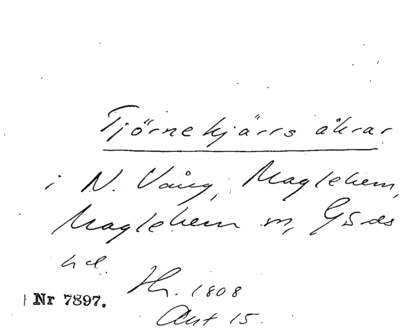 Tjörnekjärrs åkrar
i N. Vång, Maglehem,
Maglehem sn, Gärds
hd.
Hr. 1808
Akt 15.
Nr 7897.